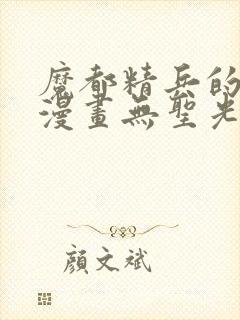 魔都精兵的
漫畫無聖光
顏文斌